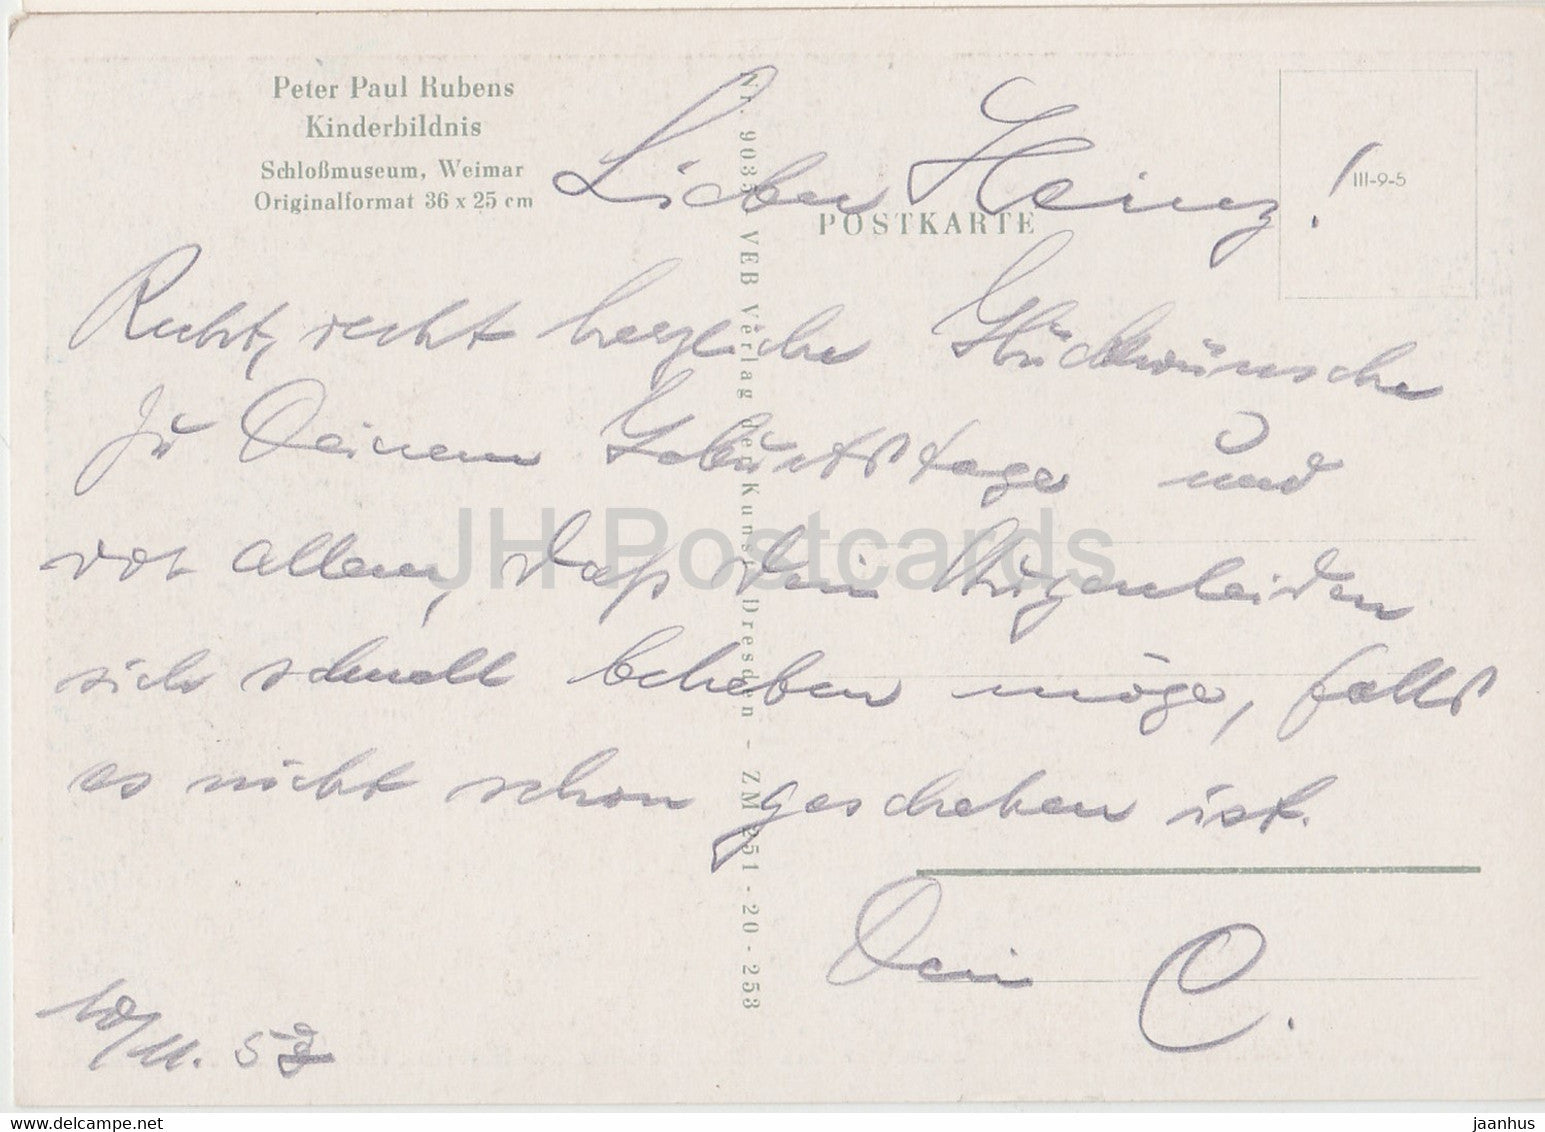 Peter Paul Rubens
Kinderbildnis
Schloßmuseum, Weimar
Originalformat 36 x 25 cm
POSTKARTE
III-9-5
Lieber Heinz!
Recht, recht herzliche Glückwünsche
zu Deinem Geburtstage und
vor allem, daß dein Augenleiden
sich schnell beheben möge, falls
es nicht schon geschehen ist.
Dein C.
11. 57
VEB Verlag der Kunst Dresden - ZM 251 - 20 - 253
JH Postcards
www.delcampe.net
jaanhus